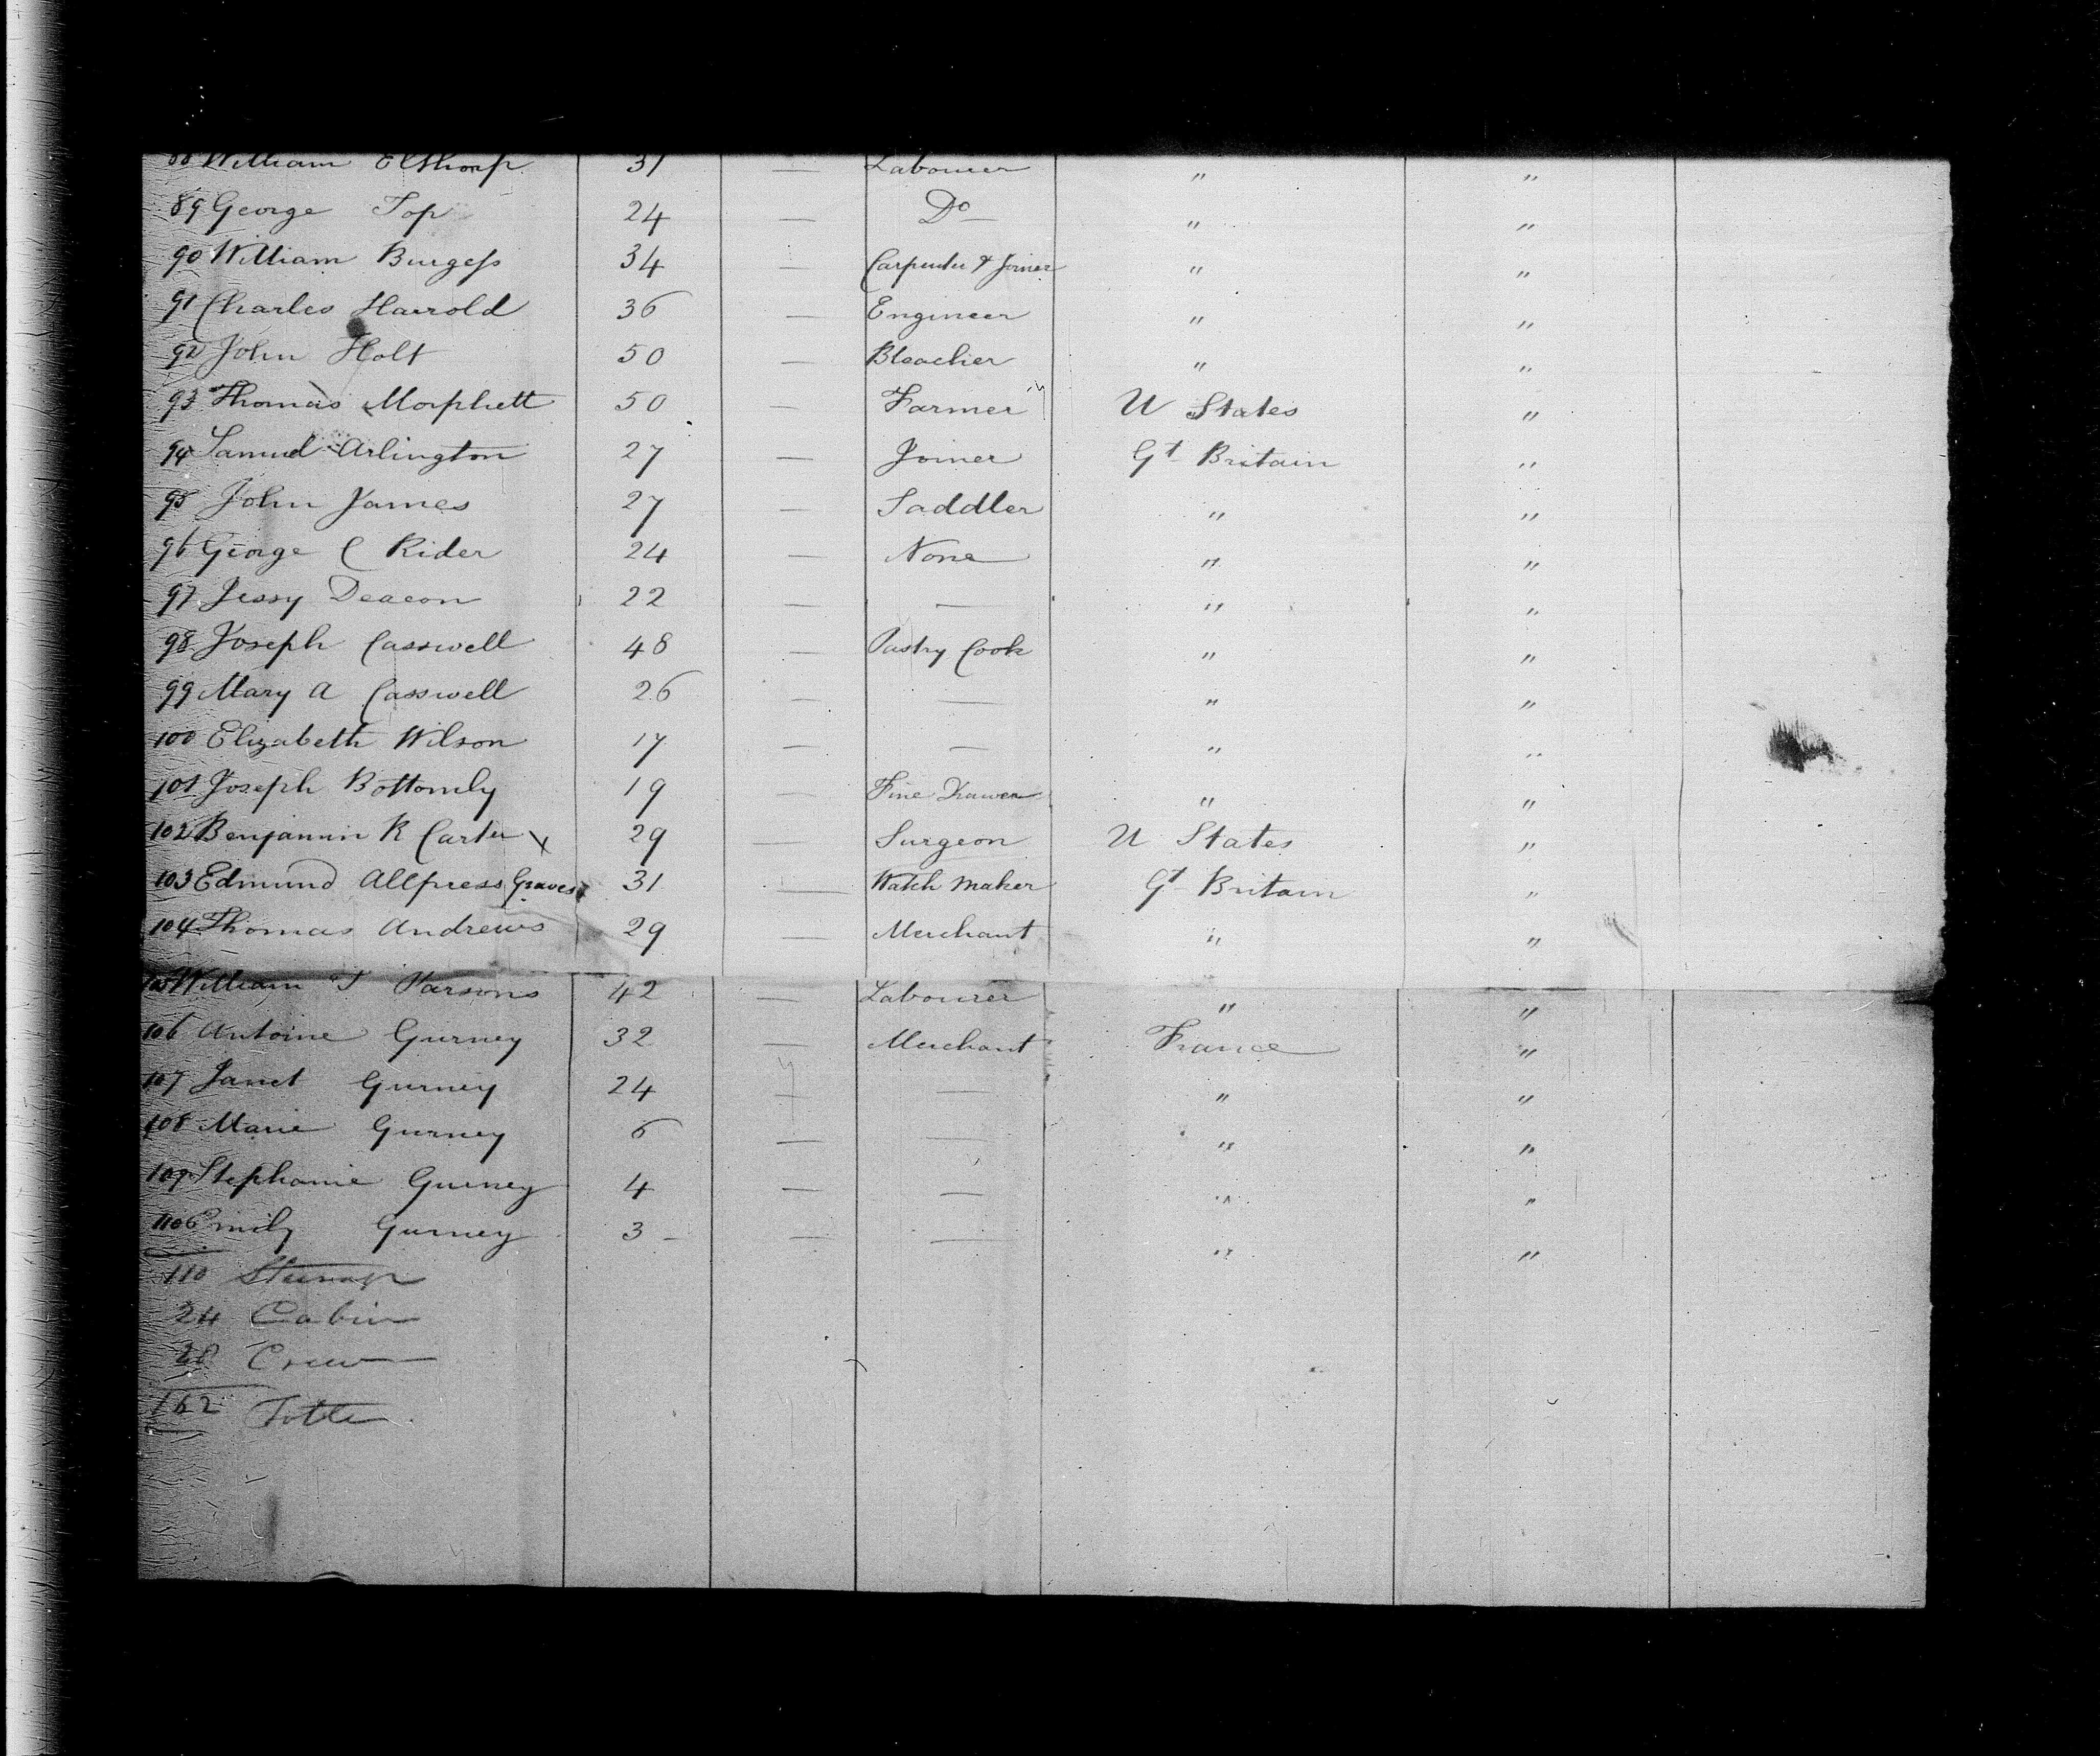 88 William Elthorp 31 — Labourer " "
89 George Top 24 — Do " "
90 William Burgess 34 — Carpenter & Joiner " "
91 Charles Harrold 36 — Engineer " "
92 John Holt 50 — Bleacher " "
93 Thomas Morphett 50 — Farmer U States "
94 Samuel Arlington 27 — Joiner Gt Britain "
95 John James 27 — Saddler " "
96 George C Rider 24 — None " "
97 Jessy Deacon 22 — — " "
98 Joseph Casswell 48 — Pastry Cook " "
99 Mary A Casswell 26 — — " "
100 Elizabeth Wilson 17 — — " "
101 Joseph Bottomly 19 — Fine Drawer " "
102 Benjamin R Carter x 29 — Surgeon U States "
103 Edmund Allpress Graves 31 — Watch Maker Gt Britain "
104 Thomas Andrews 29 — Merchant " "
105 William T Parsons 42 — Labourer " "
106 Antoine Gurney 32 — Merchant France "
107 Janet Gurney 24 — — " "
108 Marie Gurney 6 — — " "
109 Stephanie Gurney 4 — — " "
110 Emily Gurney 3 — — — " "
110 Steerage
24 Cabin
28 Crew
162